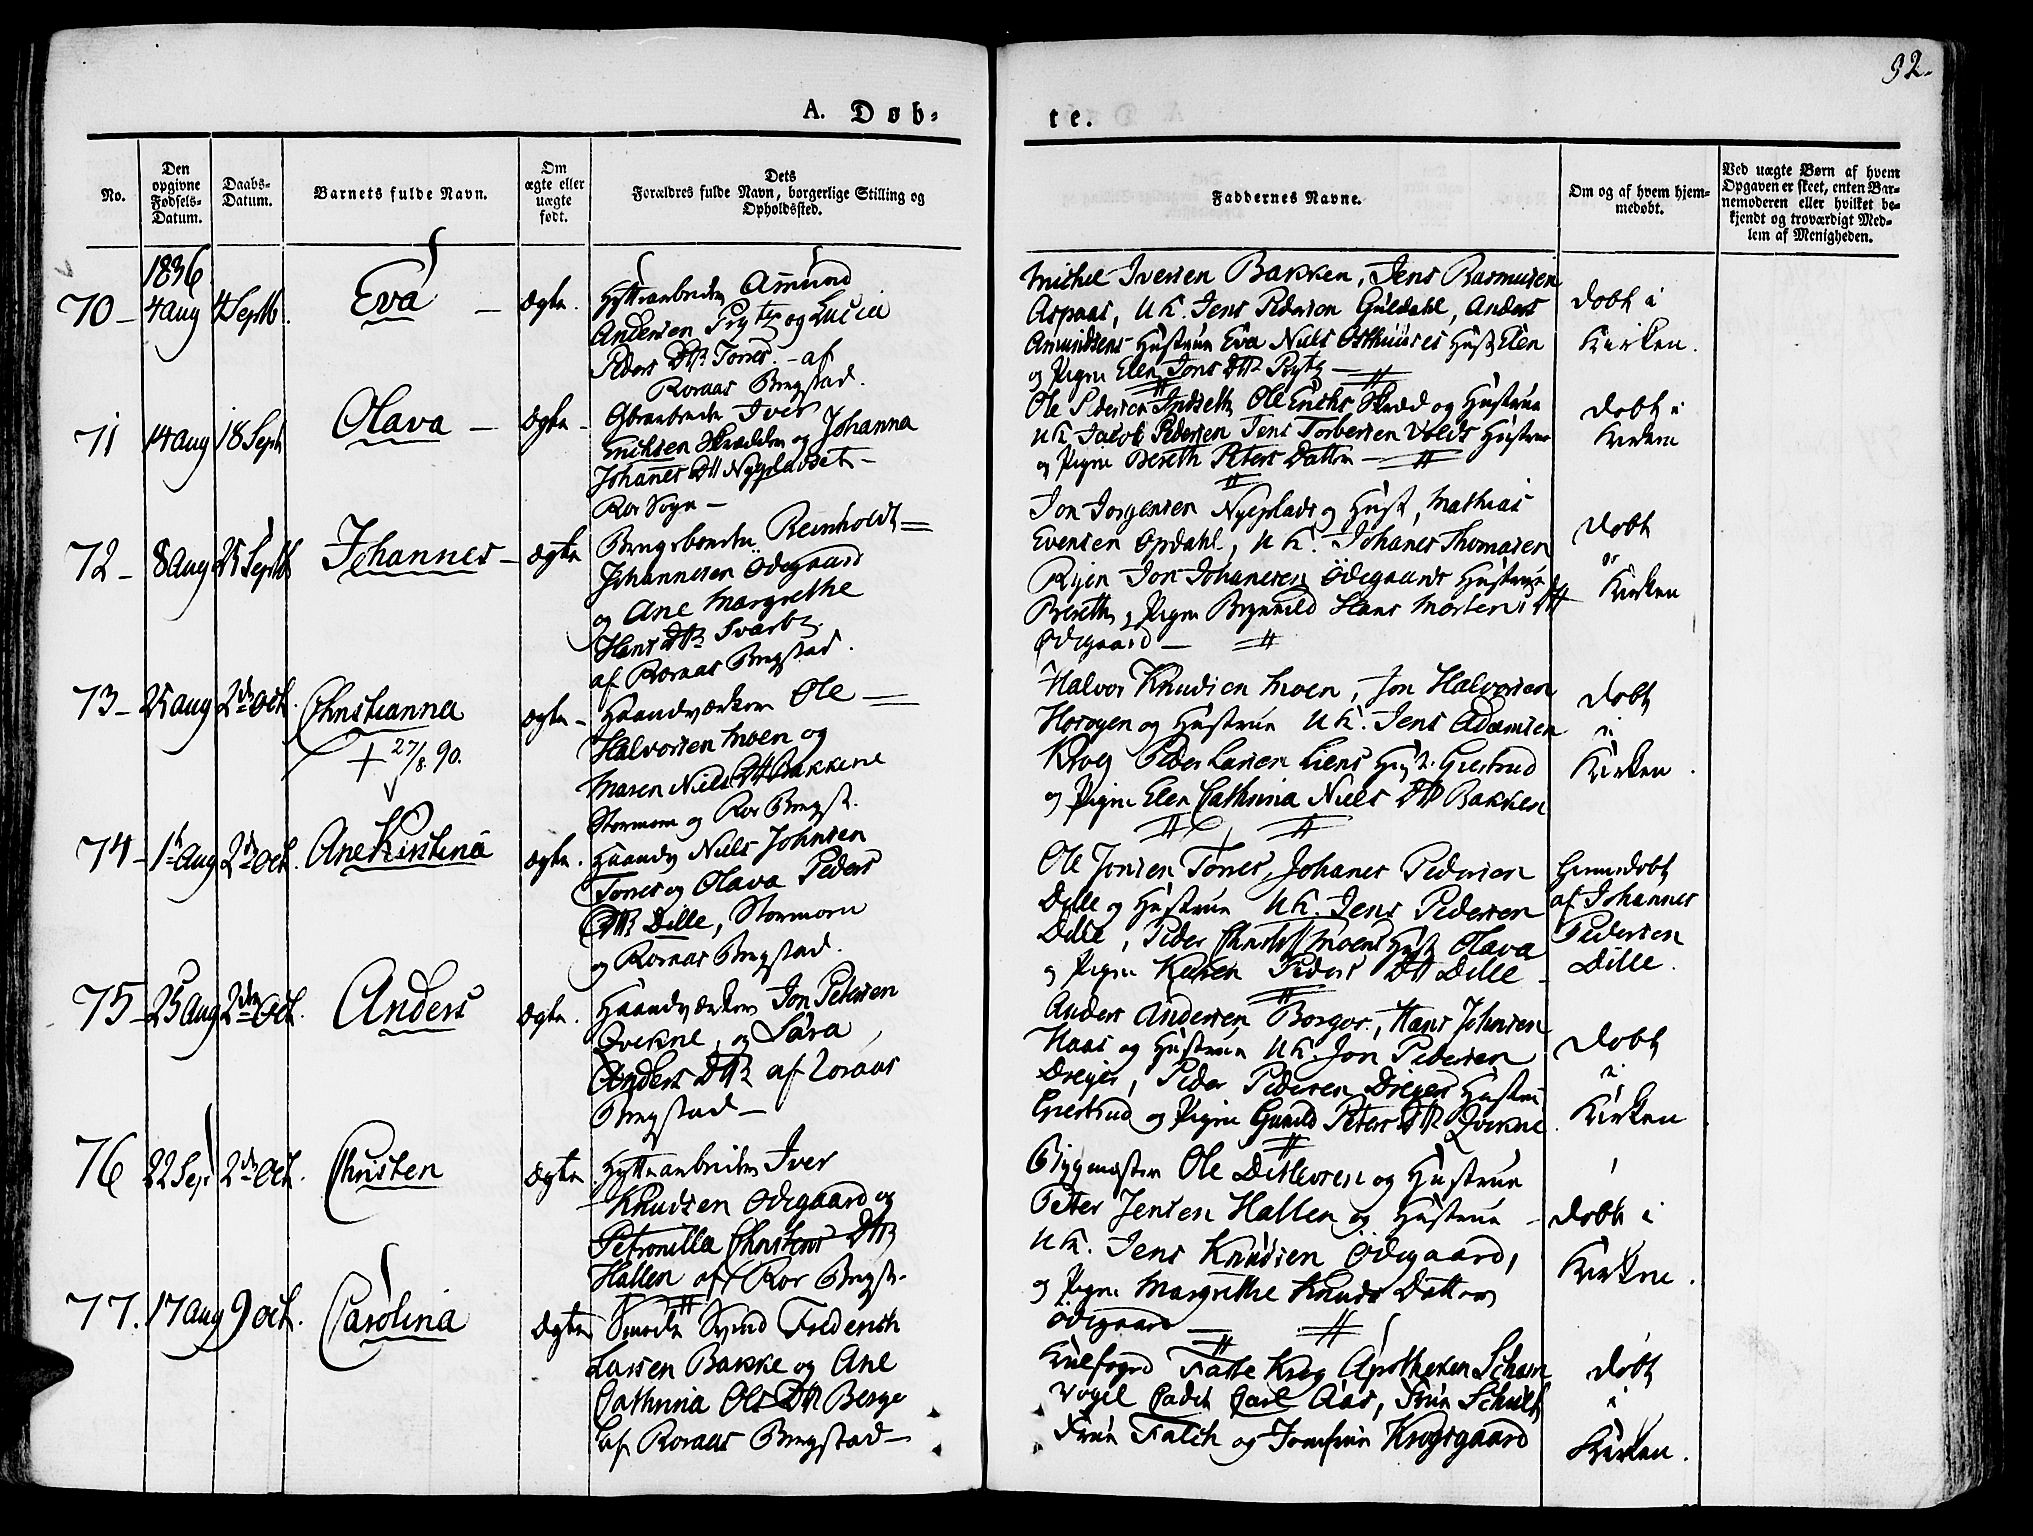 92.
A. Døb-
te.
No.
Den opgivne Fødsels-Datum.
Daabs-Datum.
Barnets fulde Navn.
Om ægte eller uægte født.
Dets Forældres fulde Navn, borgerlige Stilling og Opholdssted.
Faddernes Navne.
Om og af hvem hjem-medøbt.
Ved uægte Børn af hvem Opgaven er skeet, enten Bar-nemoderen eller hvilket be-kjendt og troværdigt Med-lem af Menigheden.
1836
70 - 4 aug 4 Septb. Eva - ægte.
Hyttearbeider Amund
Andersen Prytz og Lucia
Peders Dtr Tønes. - af
Røraas Bergstad.
Michel Iversen Bakken, Jens Rasmusen
Aspaas, UK. Jens Pedersen Guldahl, Anders
Amundsens Hustrue Eva Niels Østhuuses Hust Elen
og Pigen Elen Jons Dtr Prytz -
Døbt i
Kirken.
71 14 aug 18 Sept Olava - ægte -
Iver
Erichsen Skrædder og Johanna
Johannes Dtr Nypladset -
Rør Sogn -
Ole Pedersen Indseth, Ole Erichs Skræd og Hustrue
UK Jacob Pedersen Jens Torbersen Volds Hustrue
og Pigen Bereth Peters Datter -
Døbt i
Kirken
72 - 8 aug 25 Septb Johannes - ægte
Reinholdt
Johannesen Ødegaard
og Ane Margrethe
Hans Dtr Svartz
af Røraas Bergstad.
Jon Jorgensen Nyeplads og Hust, Mathias
Evensen Opdahl, UK. Johanes Thomasen
Ryen Jon Johanesen Ødegaards Hustrue
Bereth og Pigen Brynnild Hans Mortens Dtr
Ødegaard -
Døbt
i
Kirken
73 - 25 aug 2den Oct. Christianna ægte -
+ 27/8. 90.
Haandværker Ole -
Halvorsen Moen og
Maren Niels Dtr Bakkene
Stormoen og Rør Bergst.
Halvor Knudsen Moen, Jon Halvorsen
og Hustrue UK. Jens Adamsen
Krog Peder Larsen Liens Hust. Giertrud
og Pigen Elen Cathrina Niels Dtr Bakken
Døbt
i
Kirken.
74 - 1 Aug 2den Oct. Ane Kirstina ægte.
Haandv Niels Johnsen
Tønes og Olava Peders
Dtr Dille, Stormoen
og Røraas Bergstad.
Ole Jonsen Tønes, Johanes Pedersen
Dille og Hustrue UK. Jens Pedersen
Dille, Peder Moens Hust Olava
og Pigen Karen Peders Dtr Dille -
Hiemedøbt
af Johannes
Pedersen
Dille.
75 - 25 aug 2den Oct. Anders ægte.
Haandværker Jon Petersen
Qvekne, og Sara,
Anders Dtr af Roraas
Bergstad -
Anders Andersen Borgos, Hans Johnsen
Haas og Hustrue UK. Jon Pedersen
Dreyer, Peder Pedersen Dreyers Hustru
Giertrud og Pigen Gunild Peters Dtr Qvekne.
Døbt
i
Kirken
76 22 Sep 2den Oct. Christen ægte
Hyttearbeider Iver
Knudsen Ødegaard og
Petronilla Christens Dtr
Hallen af Rør Bergst.
Bygmester Ole Ditlevsen og Hustrue
Petter Jensen Hallen og Hustrue -
UK. Jens Knudsen Ødegaard,
og Pigen Margrethe Knuds Datter
Ødegaard -
Døbt i
Kirken.
77. 17 aug 9 Oct. Carolina ægte
Smede Svend Frederich
Larsen Bakke og Ane
Cathrina Ols Dtr Berge
af Røraas Bergstad -
Krog Apotheker
Vogel Cadet Carl Aas, Frue Schult
Frue Falch og Jomfrue Krogsgaard
Døbt
i
Kirken.